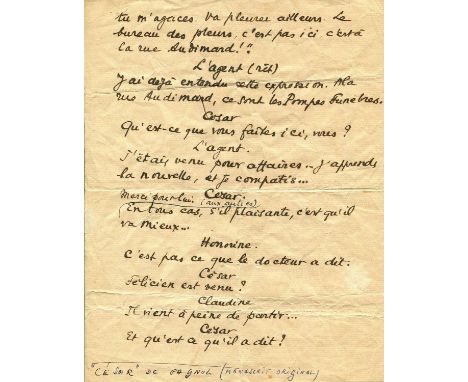 tu m'agaces. Va pleurer ailleurs. Le
bureau des pleurs, c'est pas ici c'est à
la rue Audimard!"
L'agent (rit)
J'ai déjà entendu cette expression. A la
rue Audimard, ce sont les Pompes Funèbres.
César
Qu'est-ce que vous faites ici, vous?
L'agent.
J'étais venu pour affaires... J'apprends
la nouvelle, et je compatis...
César.
Merci pour lui. (aux autres)
En tous cas, s'il plaisante, c'est qu'il
va mieux...
Honorine.
C'est pas ce que le docteur a dit.
César
Félicien est venu?
Claudine
Il vient à peine de partir...
César
Et qu'est ce qu'il a dit?
"CÉSAR" DE PAGNOL (MANUSCRIT ORIGINAL)